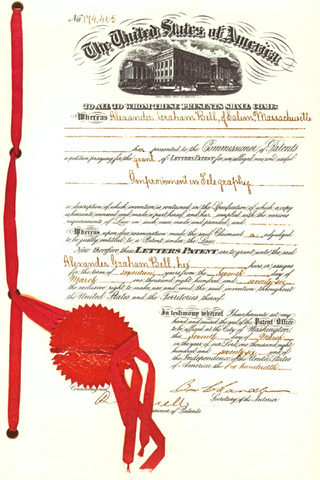 No. 174,465
The United States of America
TO ALL TO WHOM THESE PRESENTS SHALL COME:
Whereas Alexander Graham Bell, of Salem, Massachusetts
has presented to the Commissioner of Patents
a petition praying for the grant of LETTERS PATENT for an alleged new and useful
Improvement in Telegraphy
a description of which invention is contained in the Specification of which a copy
is hereunto annexed and made a part hereof, and has complied with the various
requirements of Law in such cases made and provided, and
Whereas upon due examination made the said Claimant is adjudged
to be justly entitled to a Patent under the Law.
Now therefore these LETTERS PATENT are to grant unto the said
Alexander Graham Bell, his heirs or assigns
for the term of seventeen years from the seventh day of
March one thousand eight hundred and seventy-six
the exclusive right to make, use and vend the said invention throughout
the United States and the Territories thereof.
In testimony whereof I have hereunto set my
hand and caused the seal of the Patent Office
to be affixed at the City of Washington
this seventh day of March
in the year of our Lord one thousand eight
hundred and seventy-six and of
the Independence of the United States
of America the one hundredth.
Chandler
Secretary of the Interior
Commissioner of Patents